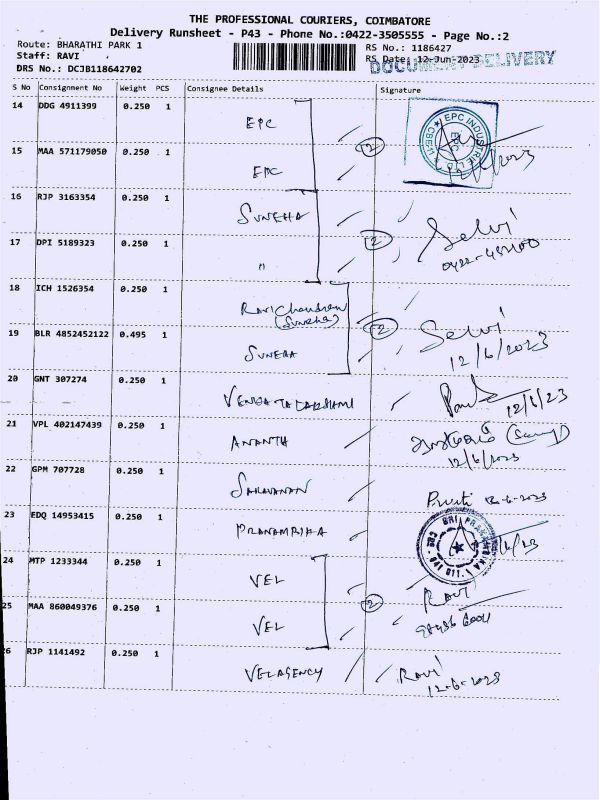 THE PROFESSIONAL COURIERS, COIMBATORE
Delivery Runsheet - P43 - Phone No.:0422-3505555 - Page No.:2
Route: BHARATHI PARK 1 RS No.: 1186427
Staff: RAVI RS Date: 12-Jun-2023
DRS No.: DCJB118642702 DOCUMENT DELIVERY
S No Consignment No Weight PCS Consignee Details Signature
14 DDG 4911399 0.250 1 EPC
EPC INDUSTRIE
15 MAA 571179050 0.250 1 EPC 2 12/6/2023
16 RJP 3163354 0.250 1 SUNEHA Selvi
17 DPI 5189323 0.250 1 " 2
18 ICH 1526354 0.250 1 Ravichandran
(Suneha) 2 Selvi
19 BLR 4852452122 0.495 1 SUNEHA 12/6/2023
20 GNT 307274 0.250 1 VENKATALAKSHAMI 12/6/23
21 VPL 402147439 0.250 1 ANANTH
12/6/2023
22 GPM 707728 0.250 1 SARAVANAN
23 EDQ 14953415 0.250 1 PRANAMBIKA
24 MTP 1233344 0.250 1 VEL RAVI
25 MAA 860049376 0.250 1 VEL 2
26 RJP 1141492 0.250 1 VELAGENCY Ravi
12-6-2023